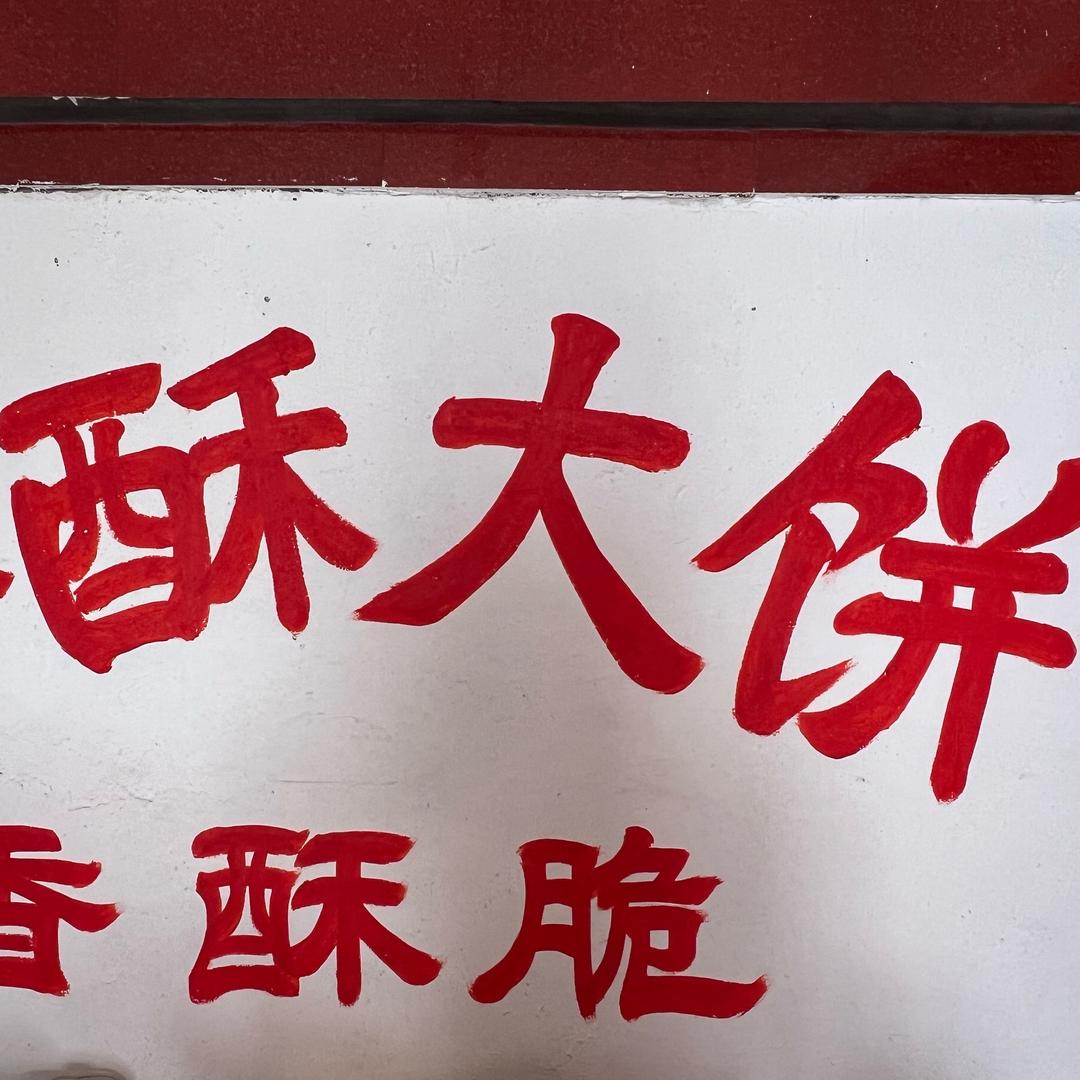 酥大饼
香酥脆